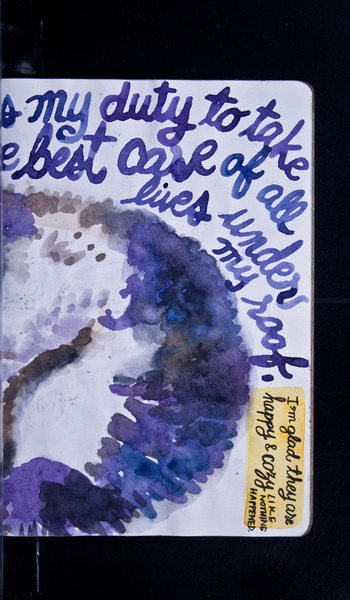 s my duty to take
e best care of all
lives under
my roof.
I'm glad they are
happy & cozy LIKE
NOTHING
HAPPENED.